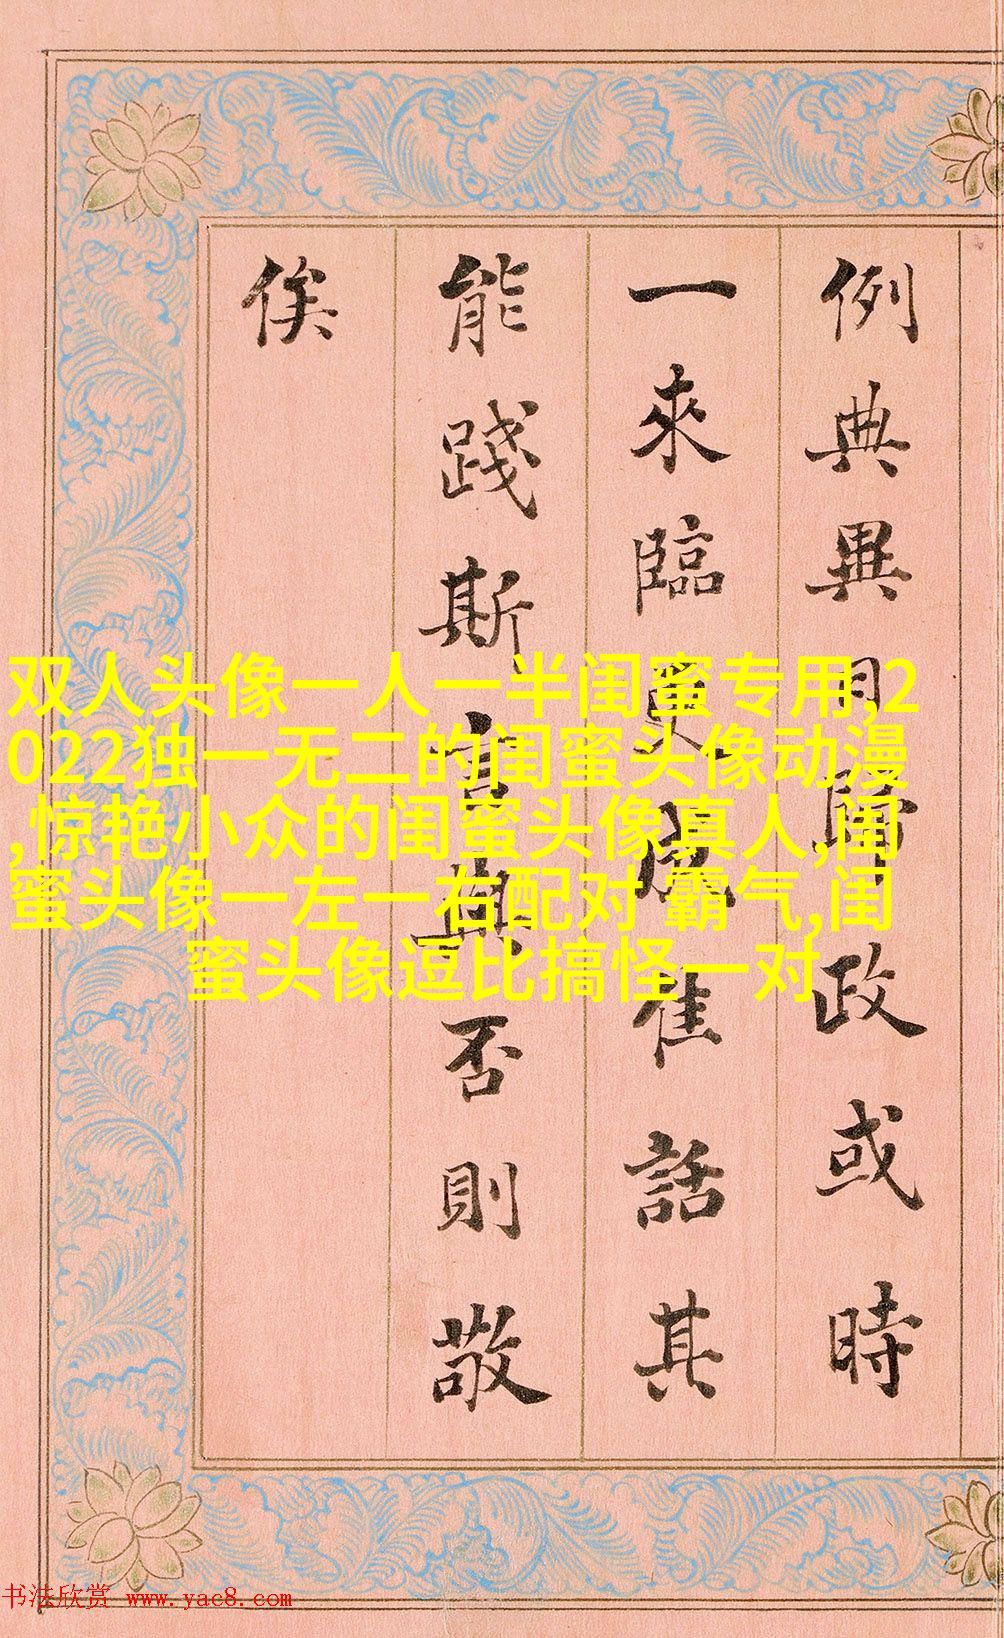 例典異日歸政或時
一來臨更成佳話其
能踐斯言與否則敬
俟
双人头像一人一半闺蜜专用,2
022独一无二的闺蜜头像动漫
,惊艳小众的闺蜜头像真人,闺
蜜头像一左一右配对 霸气,闺
蜜头像逗比搞怪一对
书法欣赏 www.yac8.com